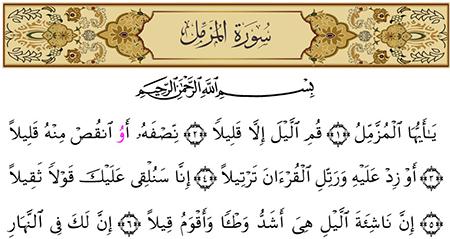 سُورَةُ المُزَّمِّل
بِسۡمِ ٱللَّهِ ٱلرَّحۡمَٰنِ ٱلرَّحِيمِ
يَـٰٓأَيُّهَا ٱلۡمُزَّمِّلُ ﴿١﴾ قُمِ ٱلَّيۡلَ إِلَّا قَلِيلاً ﴿٢﴾ نِّصۡفَهُۥ أَوُ ٱنقُصۡ مِنۡهُ قَلِيلاً
﴿٣﴾ أَوۡ زِدۡ عَلَيۡهِ وَرَتِّلِ ٱلۡقُرۡءَانَ تَرۡتِيلاً ﴿٤﴾ إِنَّا سَنُلۡقِى عَلَيۡكَ قَوۡلاً ثَقِيلاً
﴿٥﴾ إِنَّ نَاشِئَةَ ٱلَّيۡلِ هِىَ أَشَدُّ وَطۡـًٔا وَأَقۡوَمُ قِيلاً ﴿٦﴾ إِنَّ لَكَ فِى ٱلنَّهَارِ